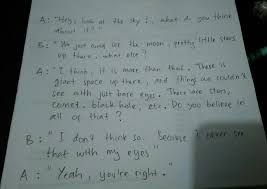 A: "Hey, look at the sky!, what do you think
about it?"
B: "We just over see the moon, pretty little stars
up there, what else?
A: "I think, it is more than that. There is
giant space up there, and things we couldn't
see with just bare eyes. There are stars,
comet, black hole, etc. Do you believe in
all of that?
B: "I don't think so. Because I never see
that with my eyes"
A: "Yeah, you're right."